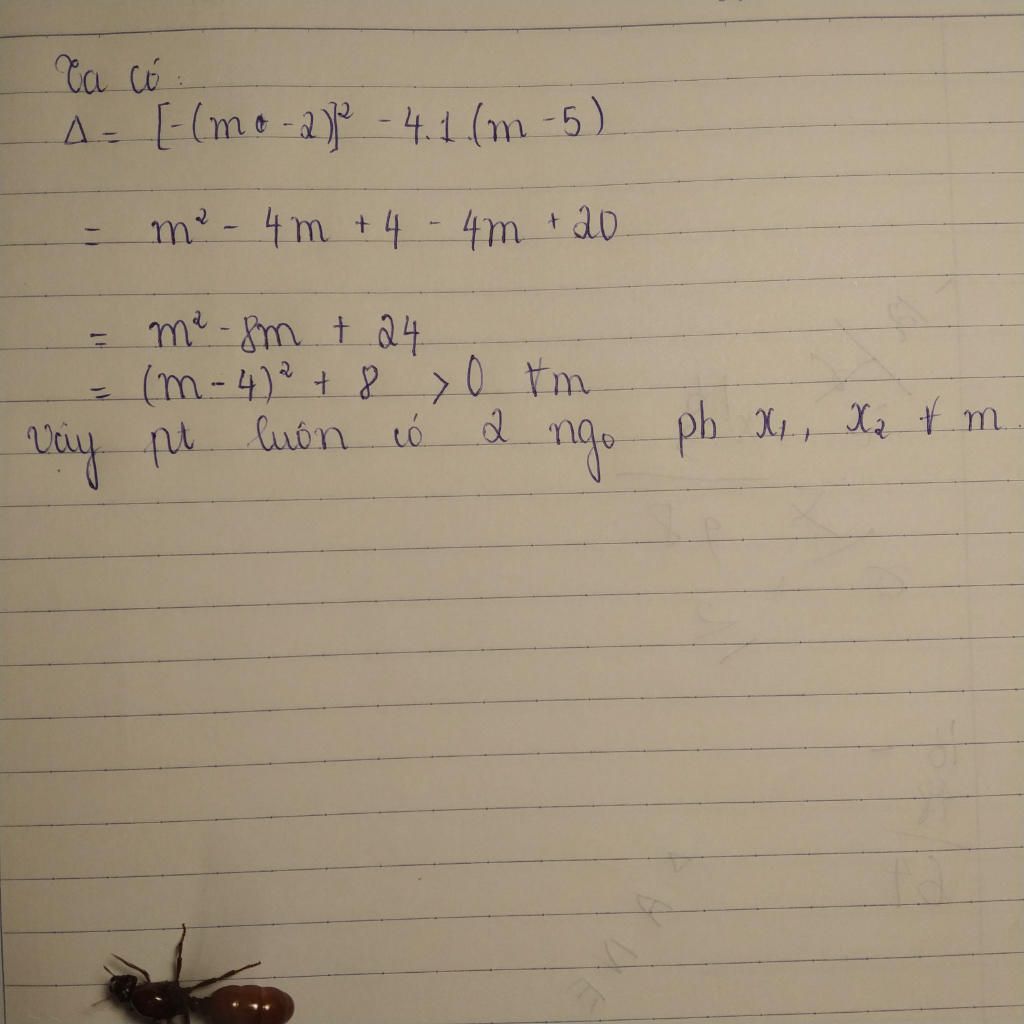 Ta có:
Δ = [-(m - 2)]² - 4.1.(m - 5)
= m² - 4m + 4 - 4m + 20
= m² - 8m + 24
= (m - 4)² + 8 > 0 ∀m
Vậy pt luôn có 2 ngo pb x₁, x₂ ∀ m